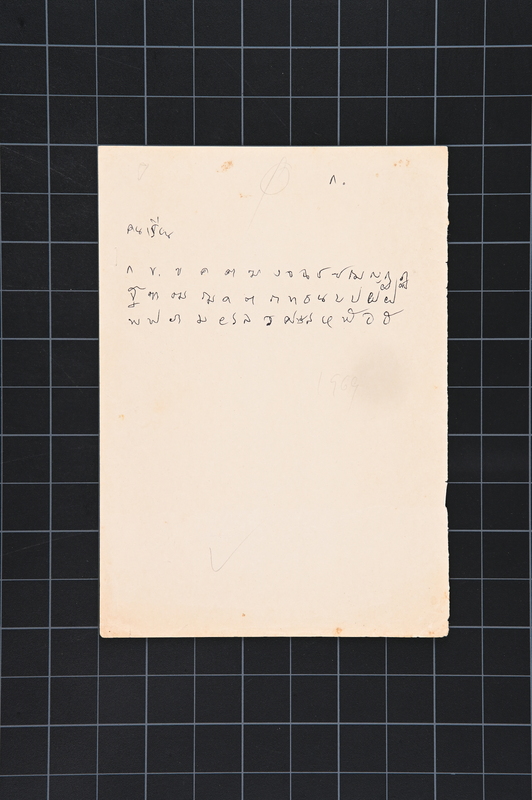 ก.
คนเรียน
ก ข ฃ ค ฅ ฆ ง จ ฉ ช ซ ฌ ญ ฎ ฏ
ฐ ฑ ฒ ณ ด ต ถ ท ธ น บ ป ผ ฝ
พ ฟ ภ ม ย ร ล ว ศ ษ ส ห ฬ อ ฮ